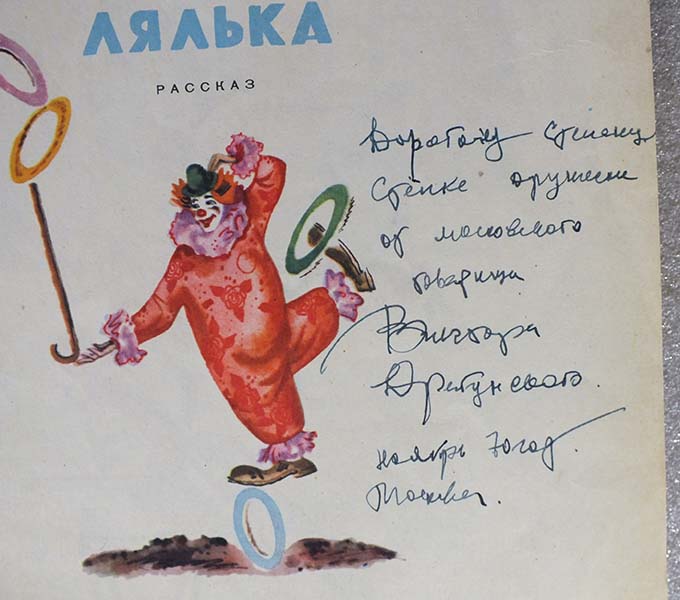 ЛЯЛЬКА
РАССКАЗ
Дорогому Степану
Стёпке дружески
от московского
товарища
Виктора
Драгунского.
ноябрь 70 год.
Москва.